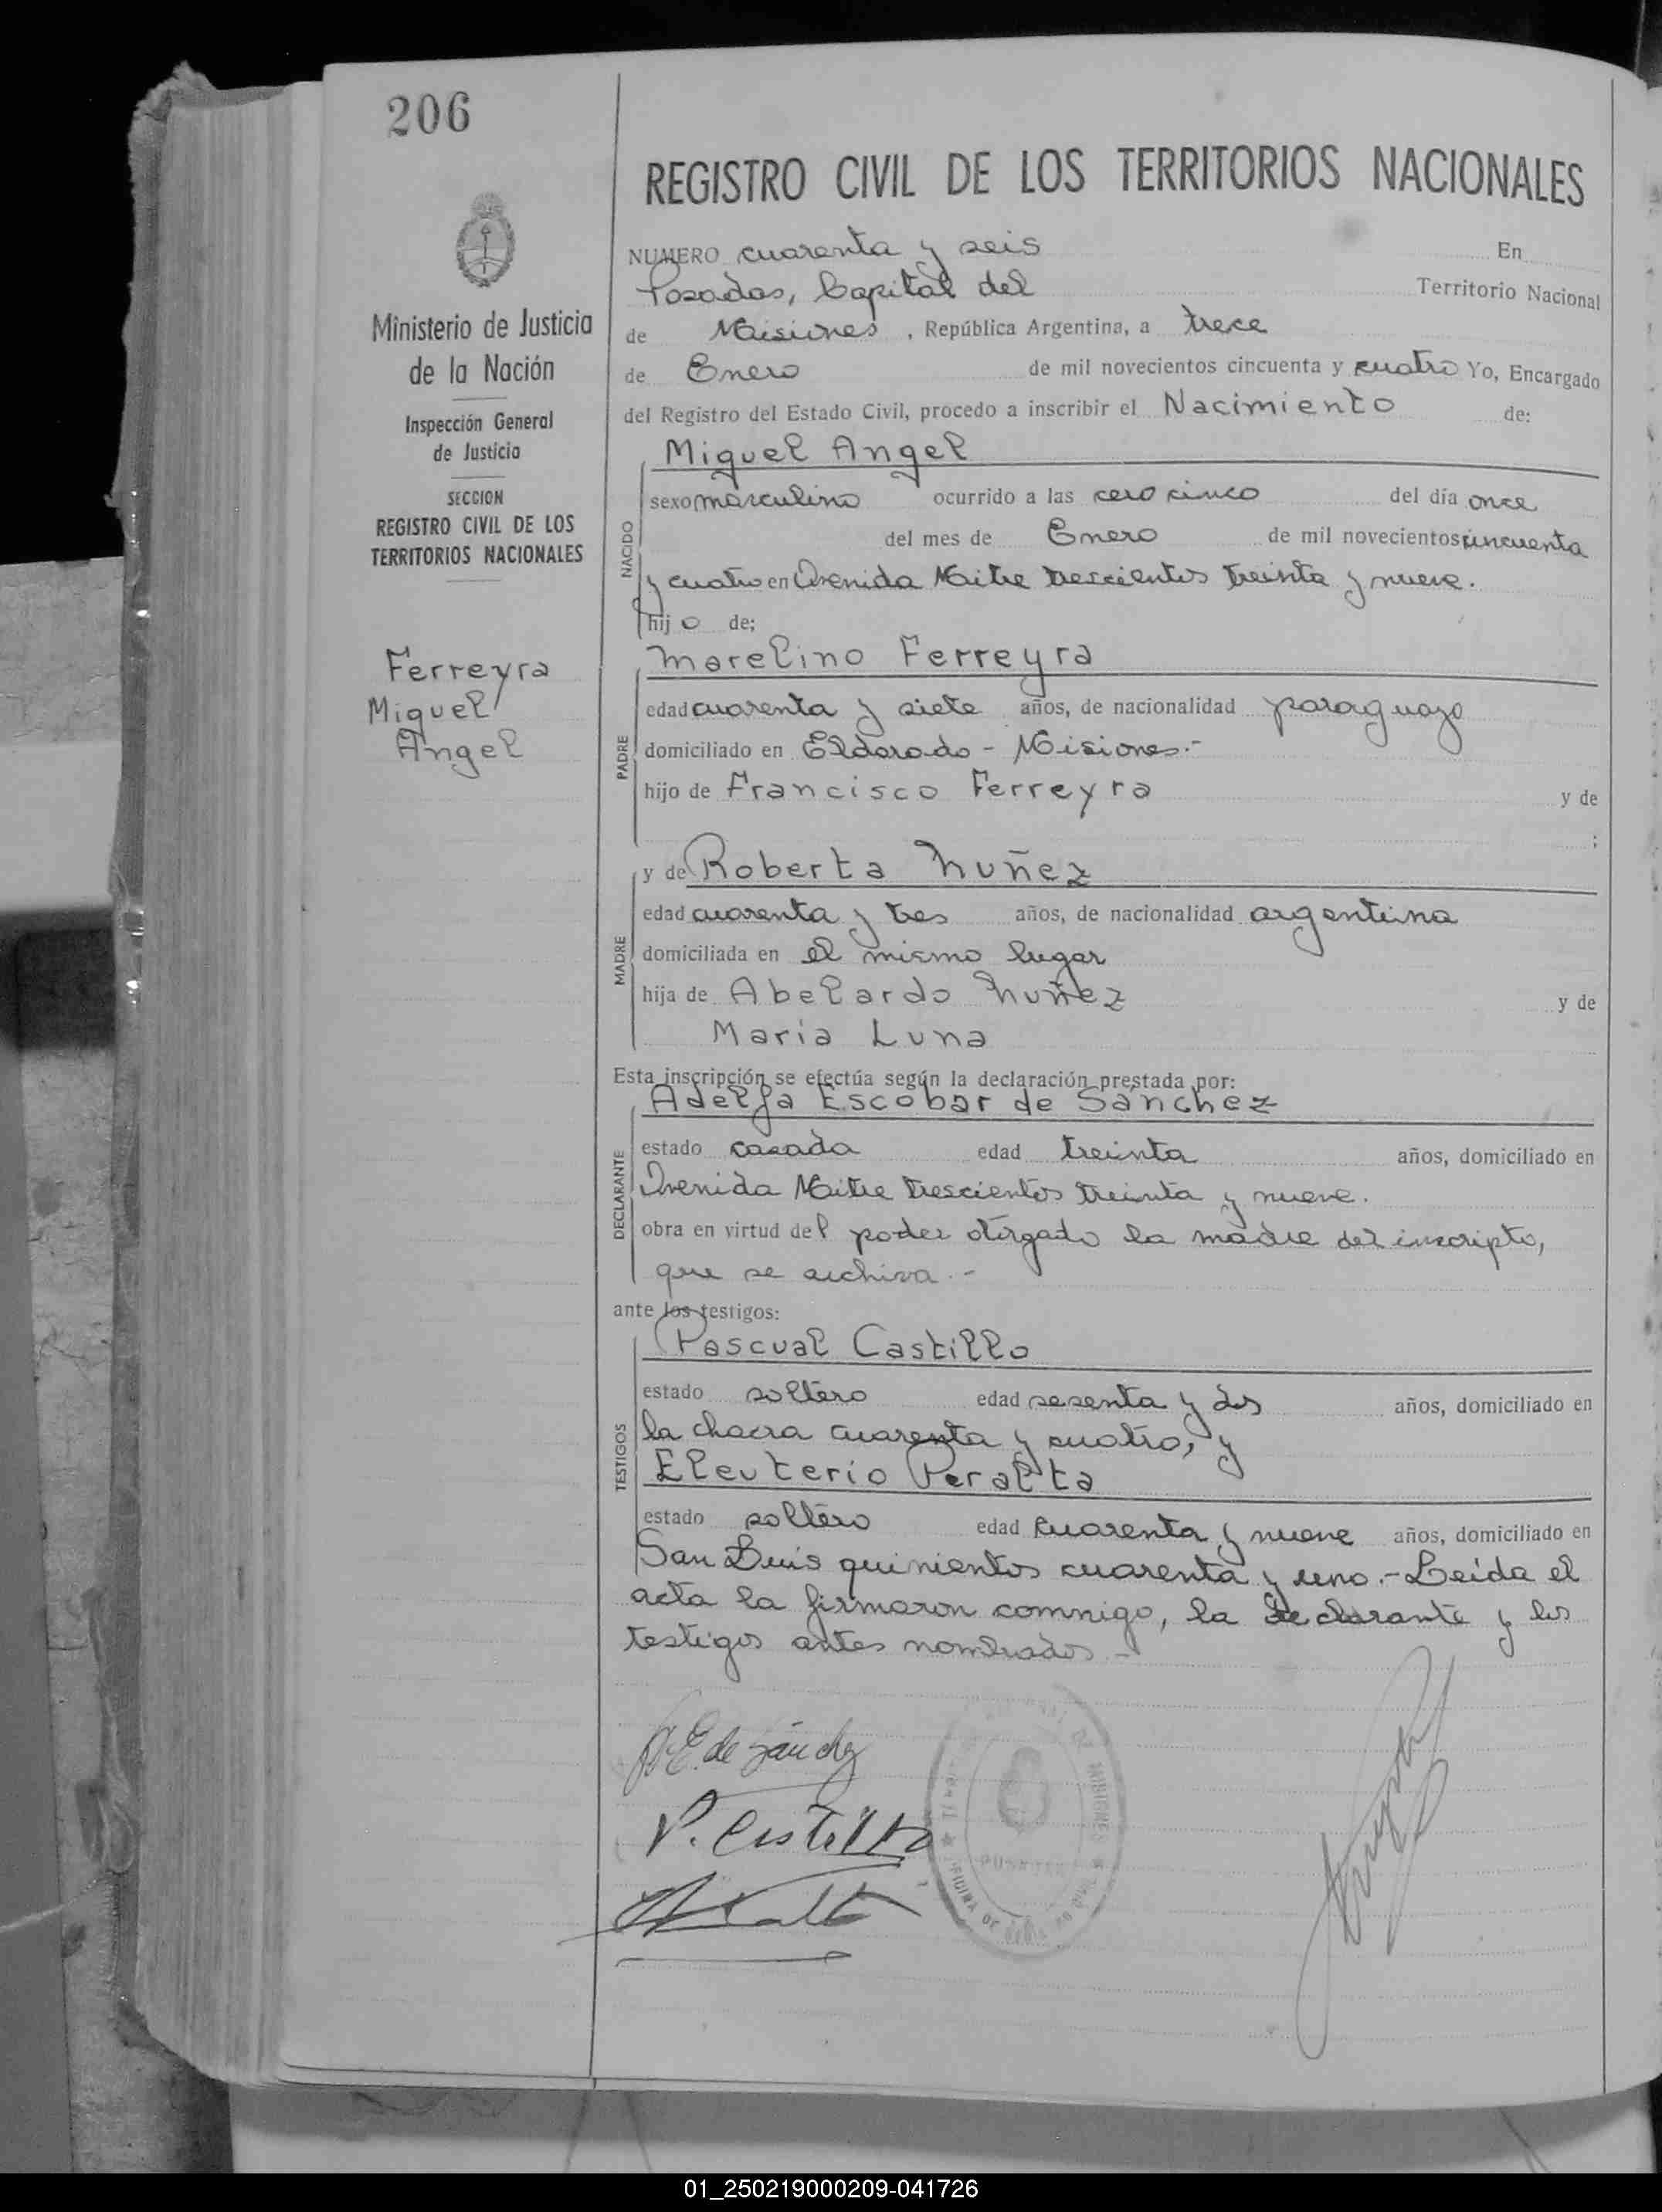 206
REGISTRO CIVIL DE LOS TERRITORIOS NACIONALES
Ministerio de Justicia
de la Nación
Inspección General
de Justicia
SECCION
REGISTRO CIVIL DE LOS
TERRITORIOS NACIONALES
Ferreyra
Miguel
Angel
NUMERO cuarenta y seis En
Posadas, Capital del Territorio Nacional
de Misiones, República Argentina, a trece
de Enero de mil novecientos cincuenta y cuatro Yo, Encargado
del Registro del Estado Civil, procedo a inscribir el Nacimiento de:
NACIDO
Miguel Angel
sexo masculino ocurrido a las cero cinco del día once
del mes de Enero de mil novecientos cincuenta
y cuatro en Avenida Mitre trescientos treinta y nueve.
hijo de;
PADRE
Marelino Ferreyra
edad cuarenta y siete años, de nacionalidad paraguayo
domiciliado en Eldorado - Misiones.-
hijo de Francisco Ferreyra y de
;
MADRE
y de Roberta Nuñez
edad cuarenta y tres años, de nacionalidad argentina
domiciliada en el mismo lugar
hija de Abelardo Nuñez y de
Maria Luna
Esta inscripción se efectúa según la declaración prestada por:
DECLARANTE
Adelfa Escobar de Sánchez
estado casada edad treinta años, domiciliado en
Avenida Mitre trescientos treinta y nueve.
obra en virtud del poder otorgado la madre del inscripto,
que se archiva.-
ante los testigos:
TESTIGOS
Pascual Castillo
estado soltero edad sesenta y dos años, domiciliado en
la chacra cuarenta y cuatro, y
Eleuterio Peralta
estado soltero edad cuarenta y nueve años, domiciliado en
San Luis quinientos cuarenta y uno.- Leída el
acta la firmaron conmigo, la declarante y los
testigos antes nombrados.-
A. E. de Sánchez
P. Castillo
MISIONES
OFICINA DE
01_250219000209-041726